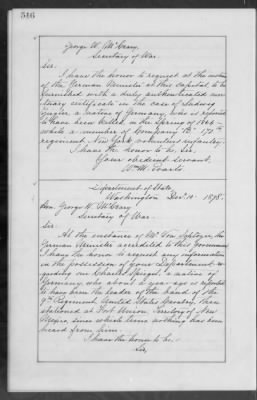 516
George W. McCrary,
Secretary of War.
Sir:
I have the honor to request at the instance
of the German Minister at this capital, to be
furnished with a duly authenticated mili-
tary certificate in the case of Ludwig
a native of Germany, who is reported
to have been killed in the Spring of 1864
while a member of Company "B" 178th
regiment New York volunteers infantry.
I have the honor to be, Sir,
Your obedient servant,
Wm. M. Evarts.
Department of State,
Washington Dec. 10 1878.
Hon. George W. McCrary
Secretary of War.
Sir:
At the instance of Mr. Von Schlözer, the
German Minister accredited to this government
I have the honor to request any information
in the possession of your Department, re-
garding one Charles Spiegel, a native of
Germany, who about a year ago is reported
to have been the leader of the band of the
9th Regiment United States Cavalry, then
stationed at Fort Union, Territory of New
Mexico, since which time nothing has been
heard from him.
I have the honor to be,
Sir,